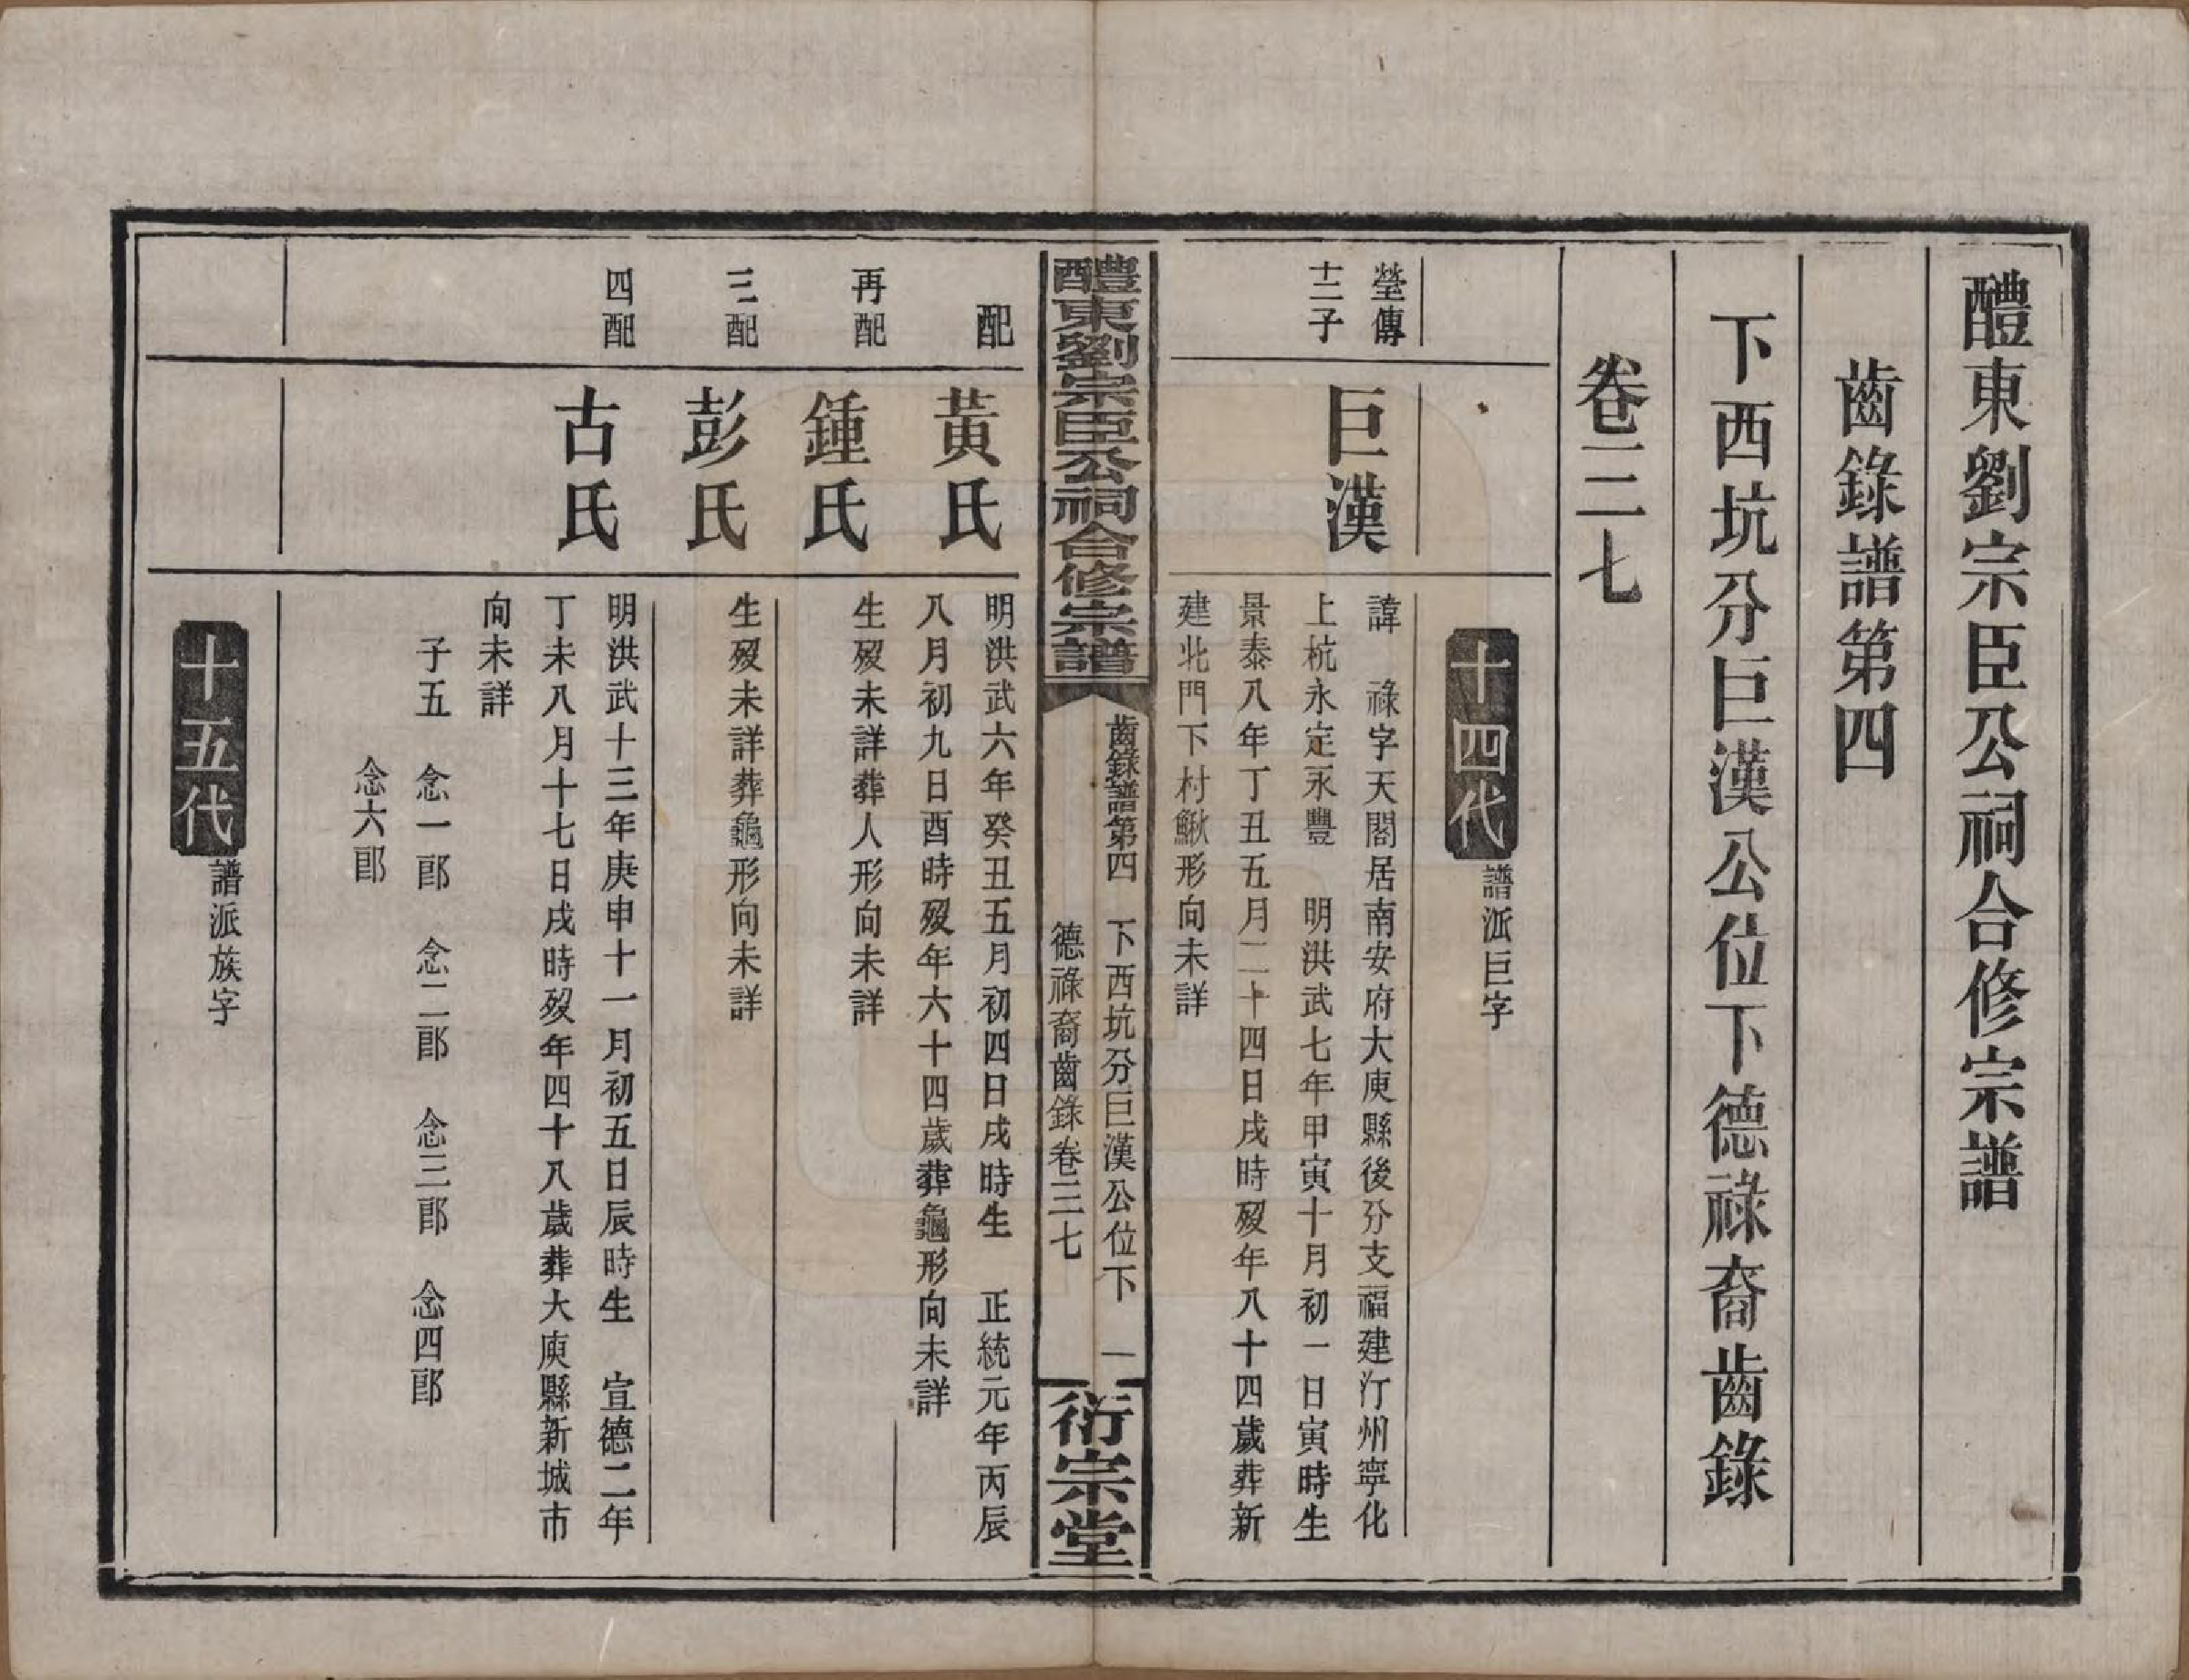 醴東劉宗臣公祠合修宗譜
齒錄譜第四
下西坑分巨漢公位下德祿裔齒錄
卷三七
十四代
譜派巨字
瑩傳
十二子
巨漢
諱　祿字天閣居南安府大庾縣後分支福建汀州寧化
上杭永定永豐　明洪武七年甲寅十月初一日寅時生
景泰八年丁丑五月二十四日戌時歿年八十四歲葬新
建北門下村鰍形向未詳
醴東劉宗臣公祠合修宗譜
齒錄譜第四
下西坑分巨漢公位下
德祿裔齒錄卷三七
一
衍宗堂
配
黃氏
明洪武六年癸丑五月初四日戌時生　正統元年丙辰
八月初九日酉時歿年六十四歲葬龜形向未詳
再配
鍾氏
生歿未詳葬人形向未詳
三配
彭氏
生歿未詳葬龜形向未詳
四配
古氏
明洪武十三年庚申十一月初五日辰時生　宣德二年
丁未八月十七日戌時歿年四十八歲葬大庾縣新城市
向未詳
子五　念一郎　念二郎　念三郎　念四郎
念六郎
十五代
譜派族字